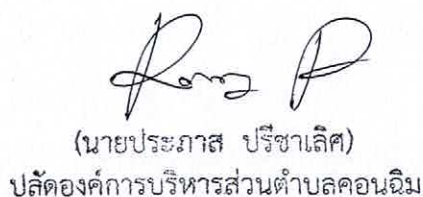 (นายประภาส ปรีชาเลิศ)
ปลัดองค์การบริหารส่วนตำบลคอนฉิม